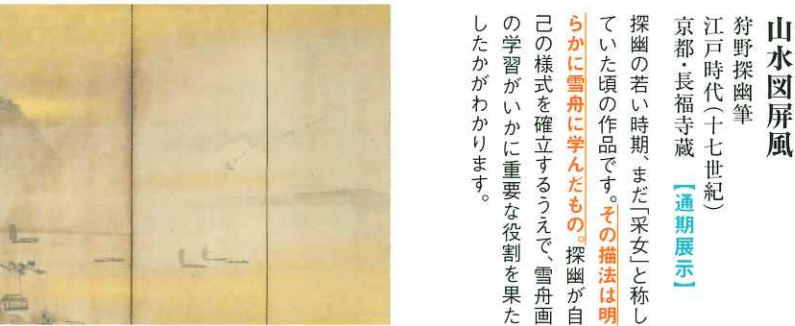 山水図屏風
狩野探幽筆
江戸時代(十七世紀)
京都・長福寺蔵 【通期展示】
探幽の若い時期、まだ「采女」と称し
ていた頃の作品です。その描法は明
らかに雪舟に学んだもの。探幽が自
己の様式を確立するうえで、雪舟画
の学習がいかに重要な役割を果た
したかがわかります。